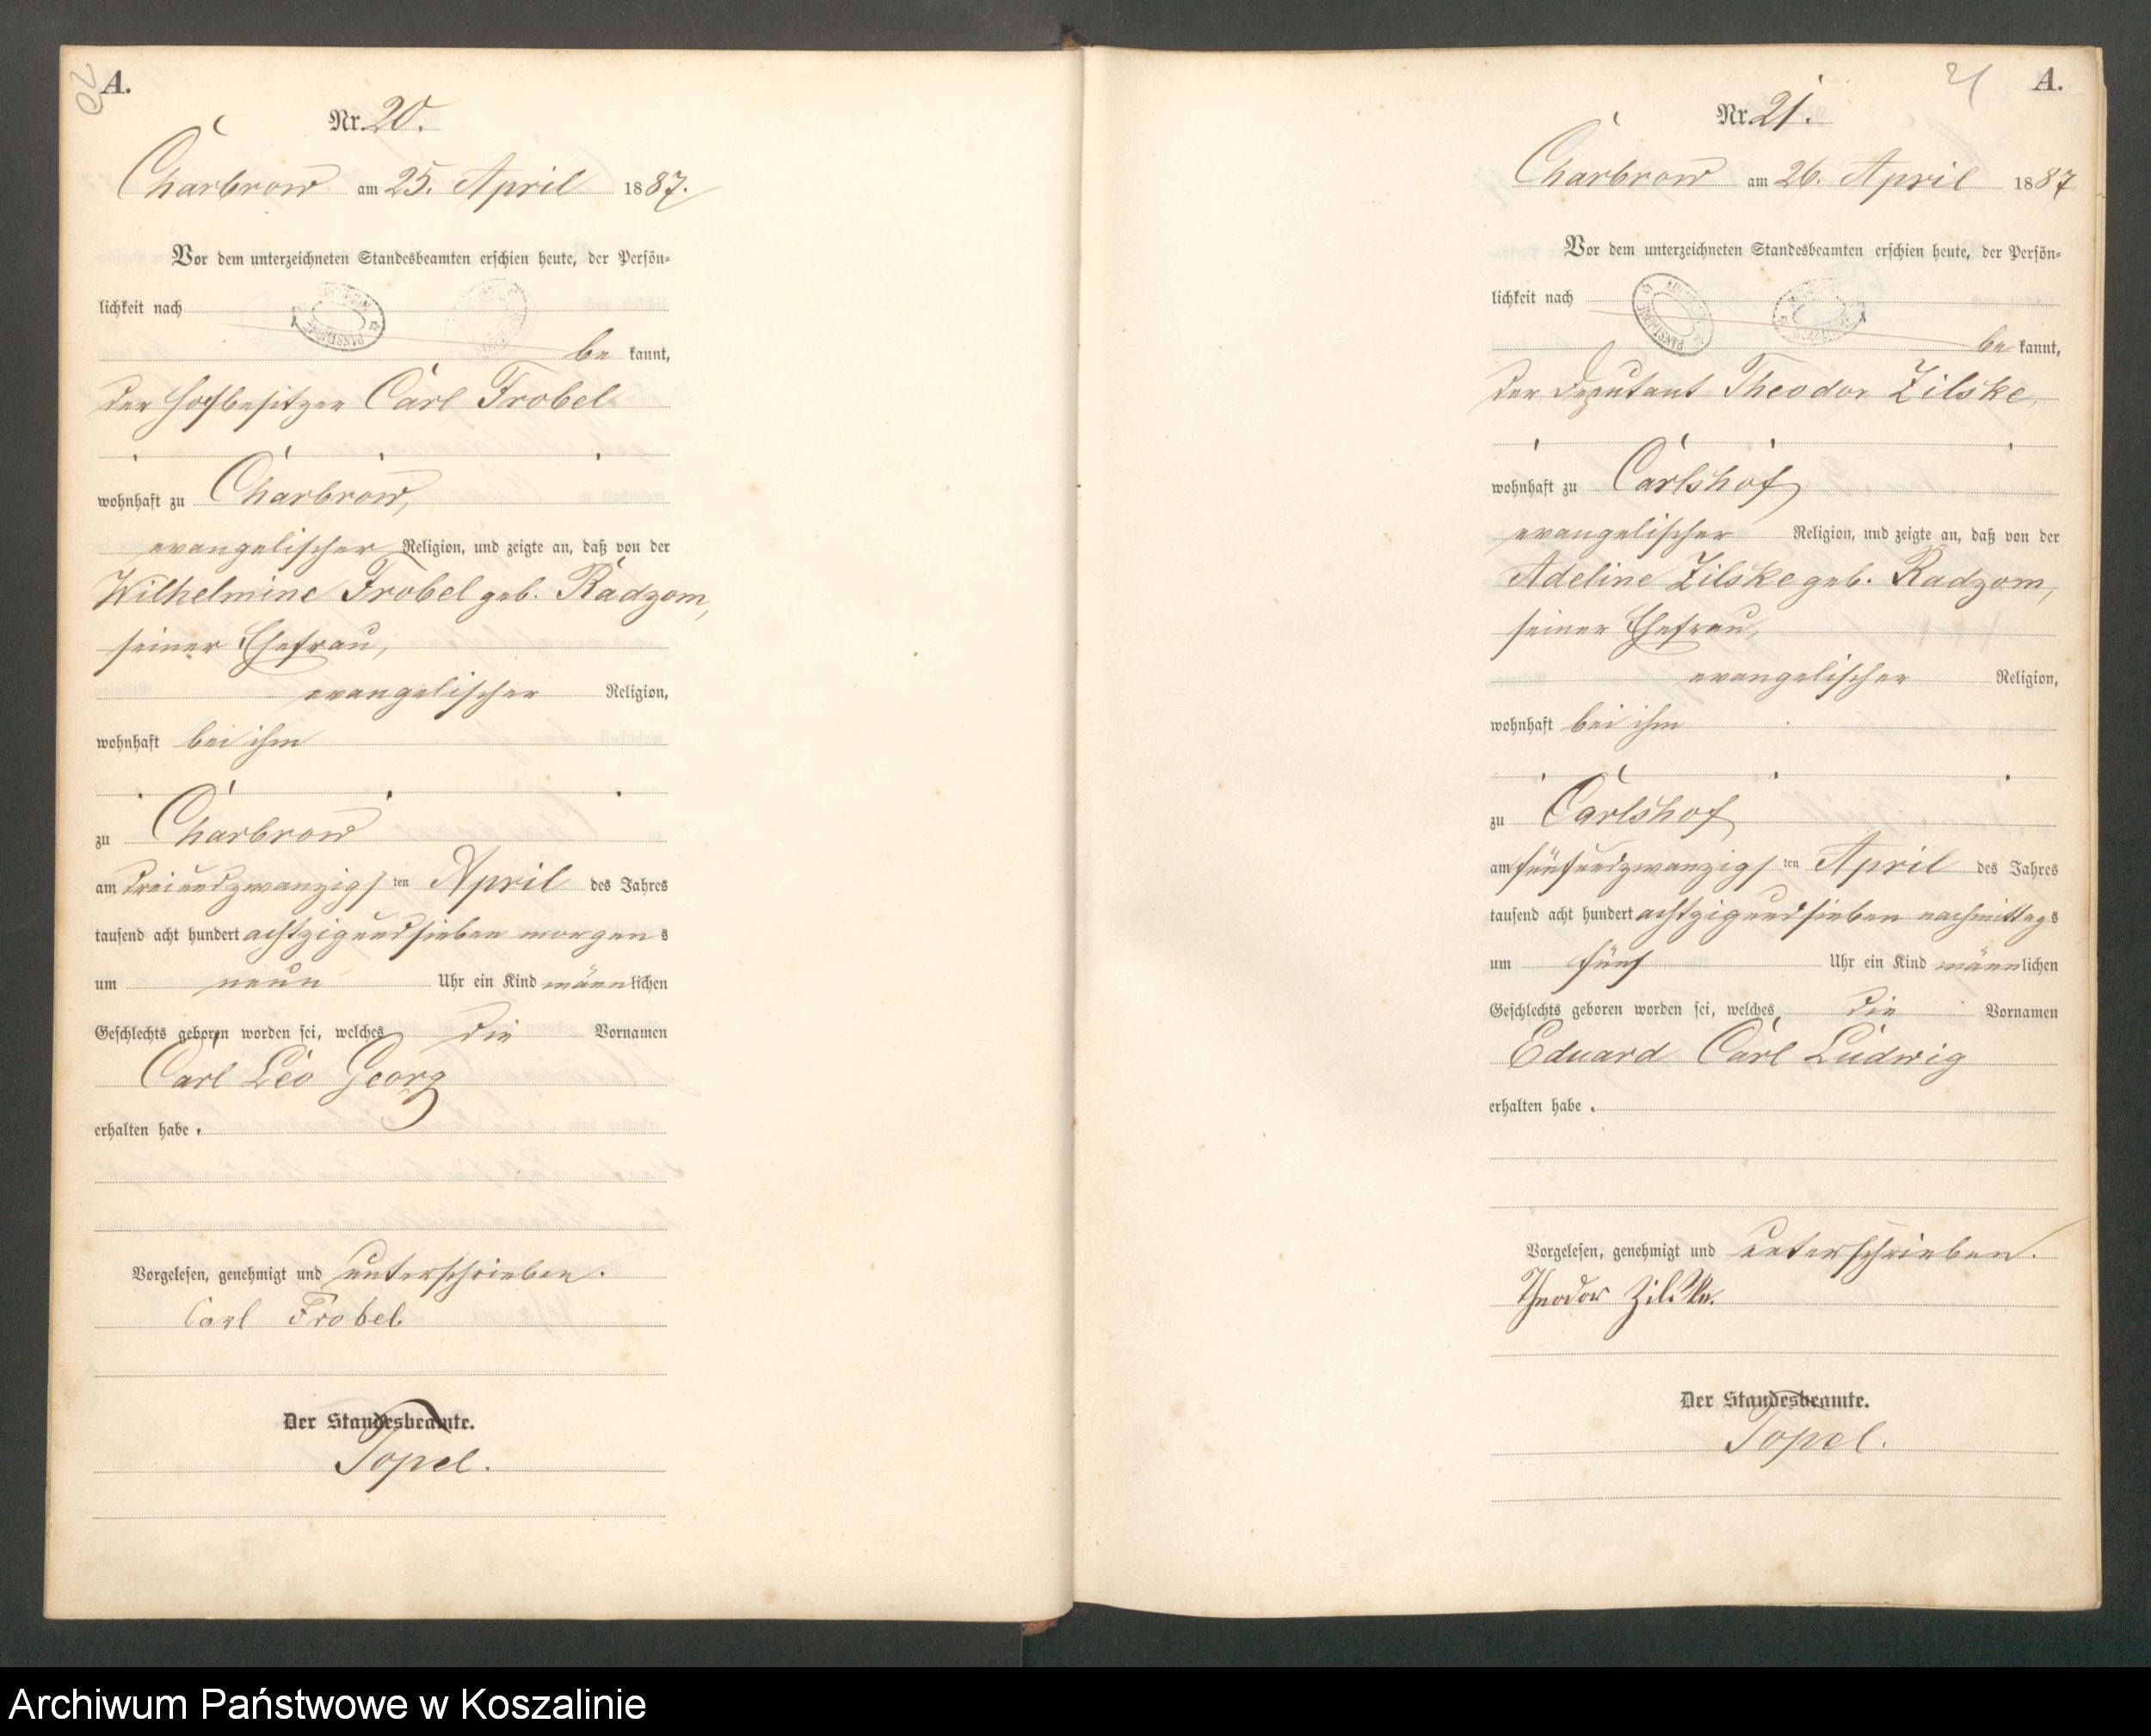 20
A.
Nr. 20.
Charbrow am 25. April 1887.
Vor dem unterzeichneten Standesbeamten erschien heute, der Persön-
lichkeit nach
be kannt,
der Hofbesitzer Carl Frobel
wohnhaft zu Charbrow,
evangelischer Religion, und zeigte an, daß von der
Wilhelmine Frobel geb. Radzom,
seiner Ehefrau,
evangelischer Religion,
wohnhaft bei ihm
zu Charbrow
am dreiundzwanzigsten April des Jahres
tausend acht hundert achtzigundsieben morgens
um neun Uhr ein Kind männlichen
Geschlechts geboren worden sei, welches die Vornamen
Carl Leo Georg
erhalten habe.
Vorgelesen, genehmigt und unterschrieben.
Carl Frobel.
Der Standesbeamte.
Topel.
21 A.
Nr. 21.
Charbrow am 26. April 1887
Vor dem unterzeichneten Standesbeamten erschien heute, der Persön-
lichkeit nach
be kannt,
der Deputant Theodor Zilske,
wohnhaft zu Carlshof
evangelischer Religion, und zeigte an, daß von der
Adeline Zilske geb. Radzom,
seiner Ehefrau,
evangelischer Religion,
wohnhaft bei ihm
zu Carlshof
am fünfundzwanzigsten April des Jahres
tausend acht hundert achtzigundsieben nachmittags
um fünf Uhr ein Kind männlichen
Geschlechts geboren worden sei, welches die Vornamen
Eduard Carl Ludwig
erhalten habe.
Vorgelesen, genehmigt und unterschrieben.
Theodor Zilske.
Der Standesbeamte.
Topel.
Archiwum Państwowe w Koszalinie